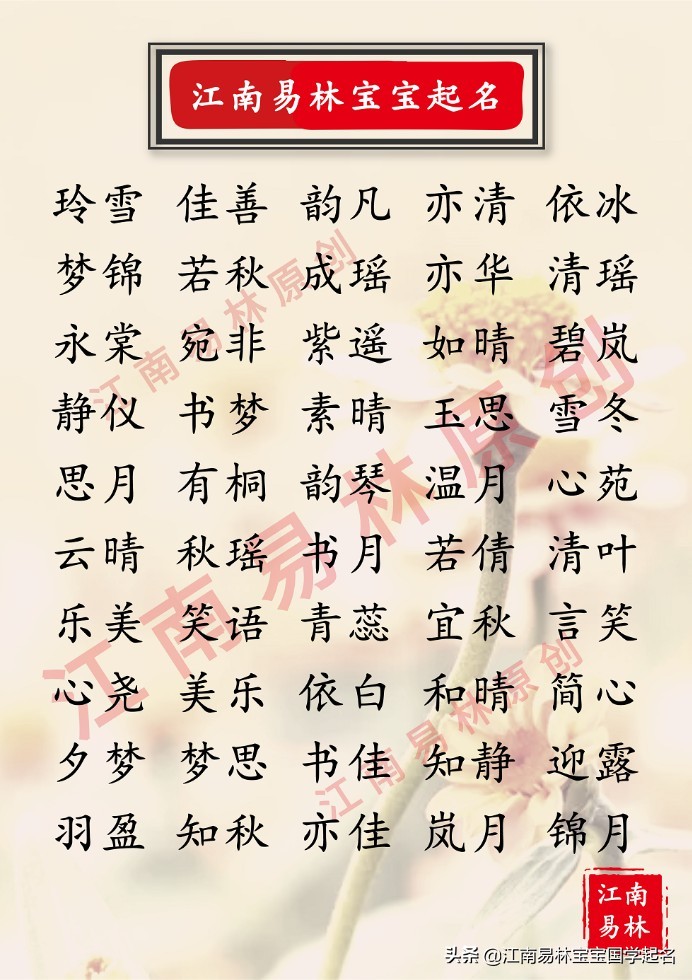 江南易林宝宝起名
玲雪 佳善 韵凡 亦清 依冰
梦锦 若秋 成瑶 亦华 清瑶
永棠 宛非 紫遥 如晴 碧岚
静仪 书梦 素晴 玉思 雪冬
思月 有桐 韵琴 温月 心苑
云晴 秋瑶 书月 若倩 清叶
乐美 笑语 青蕊 宜秋 言笑
心尧 美乐 依白 和晴 简心
夕梦 梦思 书佳 知静 迎露
羽盈 知秋 亦佳 岚月 锦月
江南易林原创
江南易林原创
江南易林原创
江南
易林
头条 @江南易林宝宝国学起名